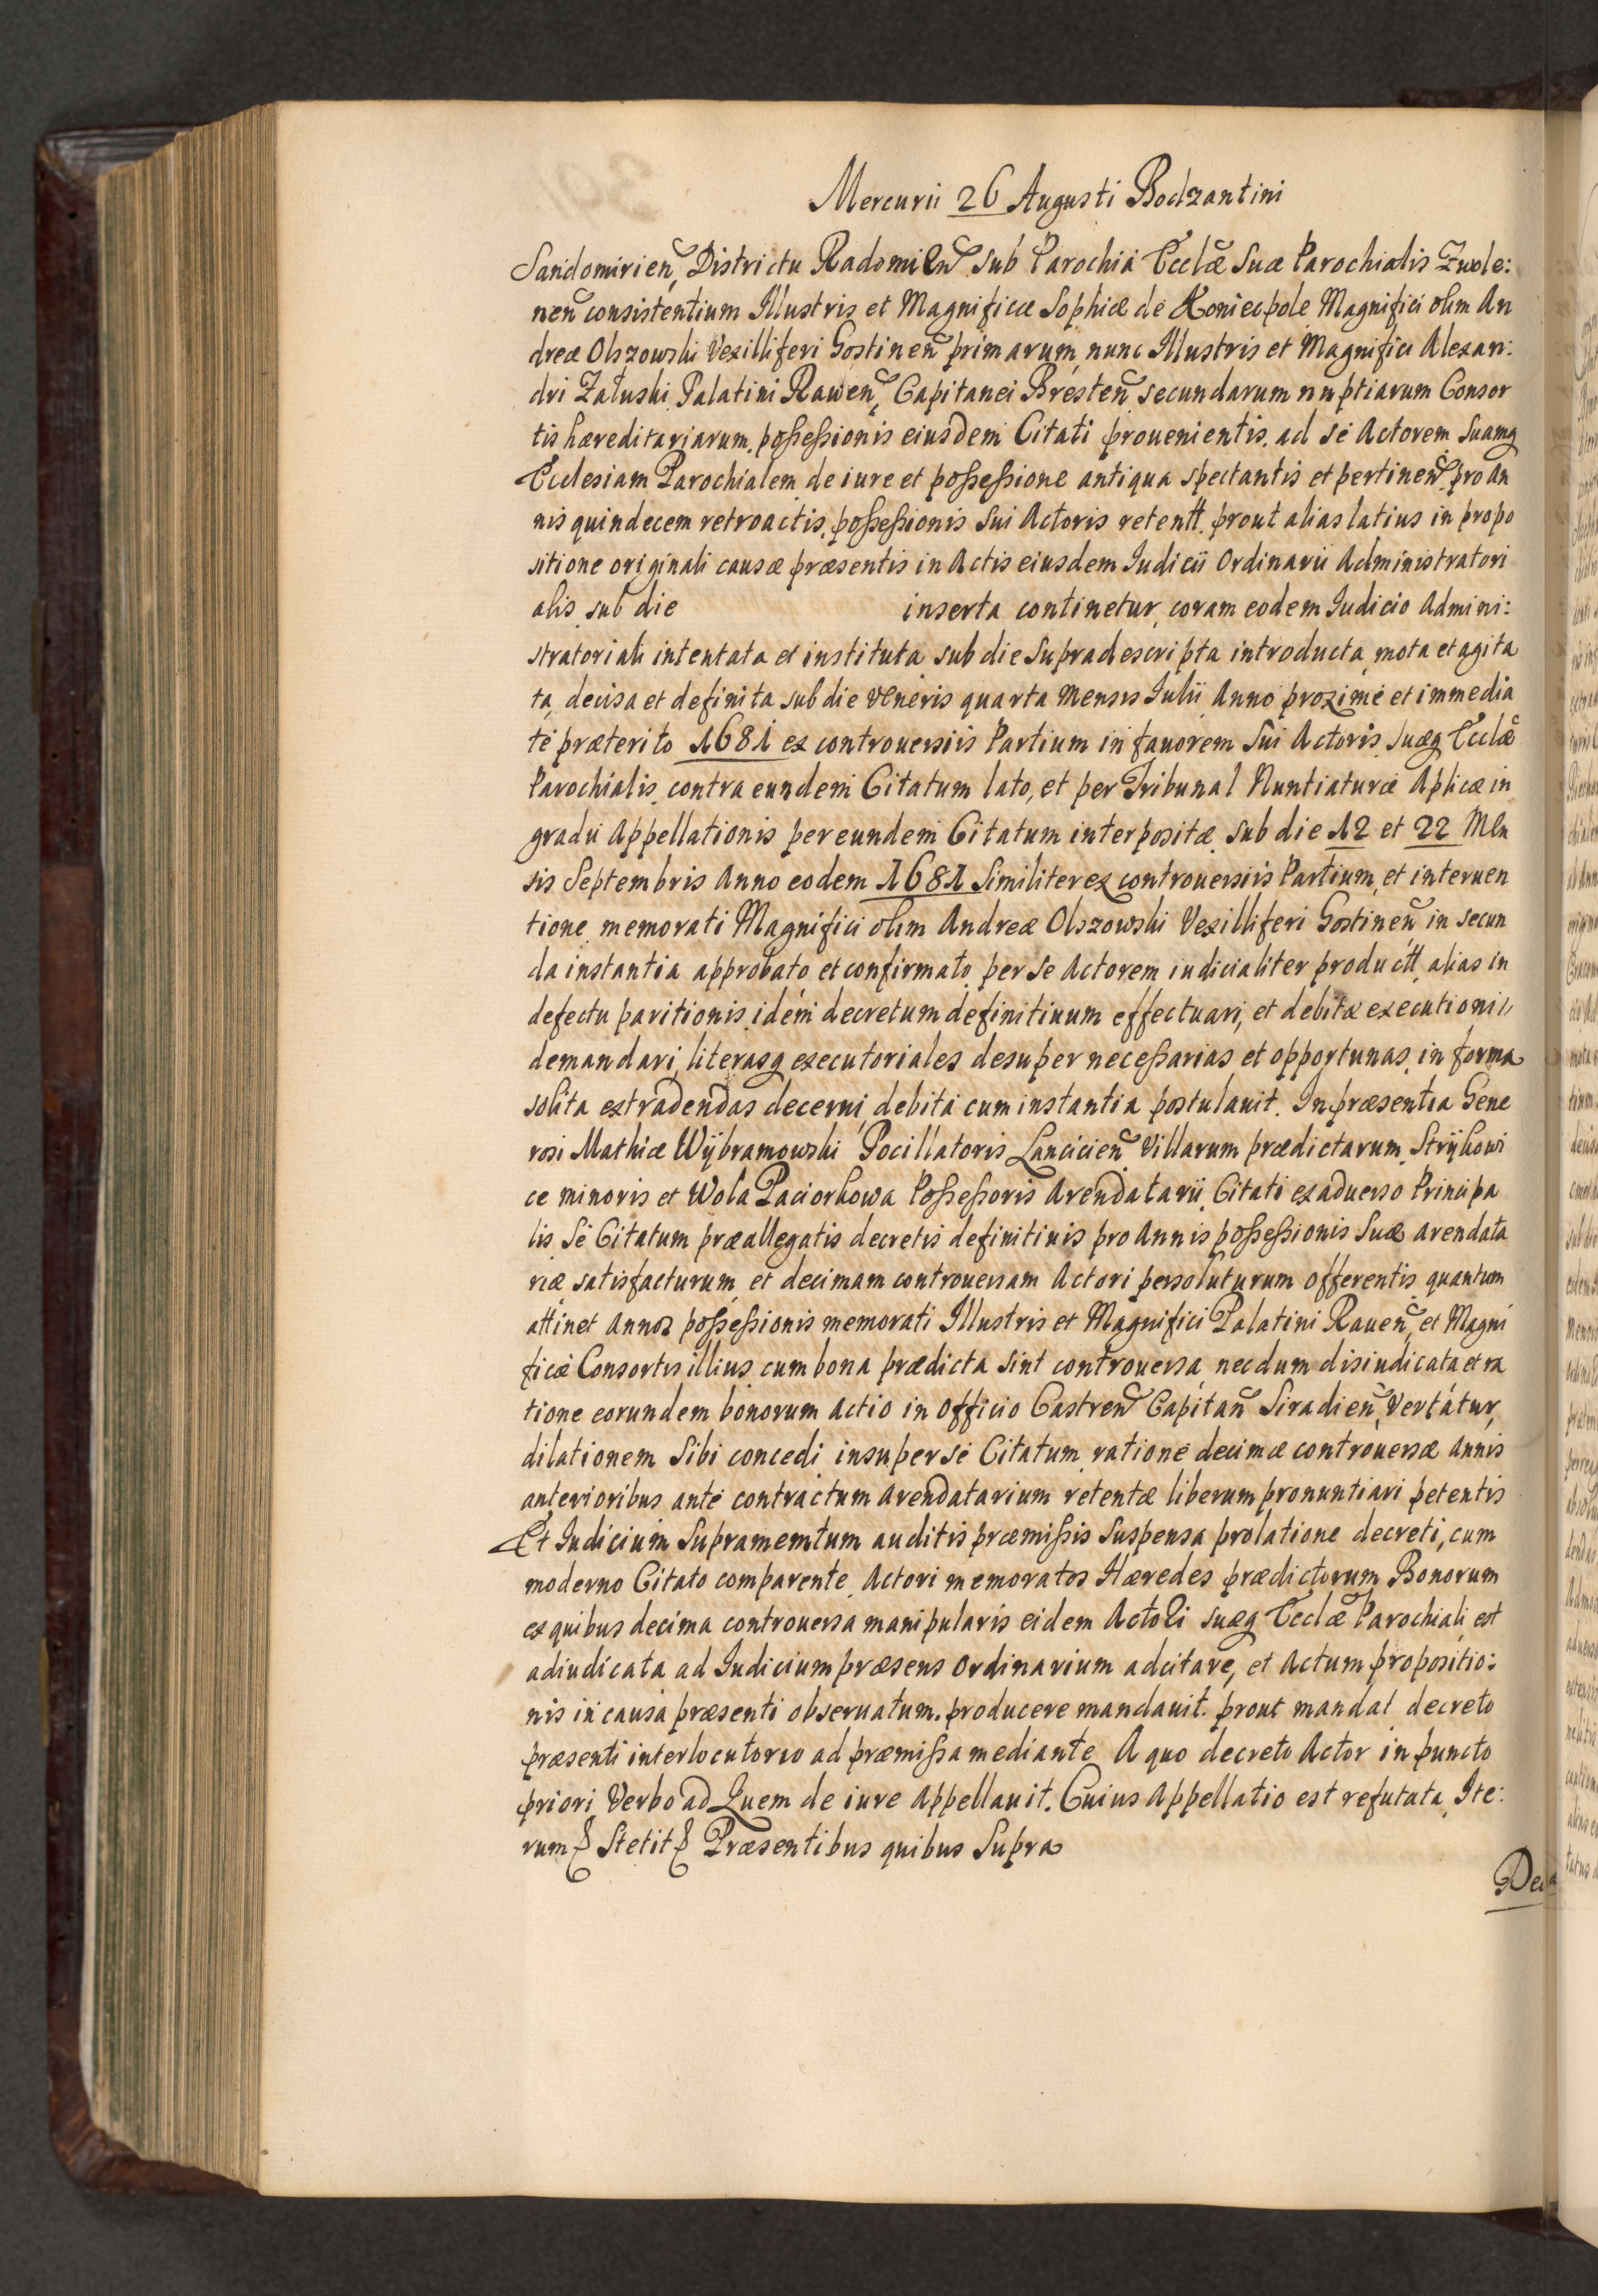 Mercurii 26 Augusti Bodzantini
Sandomirien̄, Districtu Radomien̄ sub Parochia Eccl̄æ Suæ Parochialis Zwole:
nen̄ consistentium Illustris et Magnificæ Sophiæ de Koniecpole Magnifici olim An
dreæ Olszowski Vexilliferi Gostinen̄ primarum, nunc Illustris et Magnifici Alexan:
dri Załuski Palatini Rawen̄, Capitanei Bresten̄ secundarum nuptiarum Consor
tis hæreditariarum, possessionis eiusdem Citati prouenientis, ad se Actorem suamq
Ecclesiam Parochialem de iure et possessione antiqua spectantis et pertinen̄, pro an
nis quindecem retroactis, possessionis sui Actoris retentt, prout alias latius in propo
sitione originali causæ præsentis in Actis eiusdem Iudicii Ordinarii Administratori
alis, sub die inserta continetur, coram eodem Iudicio Admini:
stratoriali intentata et instituta, sub die supradescripta introducta, mota et agita
ta, decisa et definita sub die veneris quarta mensis Iulii Anno proxime et immedia
te præterito 1681 ex controuersiis Partium in fauorem sui Actoris, suæq Eccl̄æ
Parochialis, contra eundem Citatum lato, et per Tribunal Nuntiaturæ Aplicæ in
gradu Appellationis per eundem Citatum interpositæ, sub die 12 et 22 Men
sis Septembris Anno eodem 1681 Similiter ex controuersiis Partium, et interuen
tione memorati Magnifici olim Andreæ Olszowski Vexilliferi Gostinen̄ in secun
da instantia approbato, et confirmato, per se Actorem iudicialiter productt, alias in
defectu paritionis, idem decretum definitiuum effectuari, et debitæ executioni
demandari, literasq executoriales desuper necessarias et opportunas, in forma
solita extradendas decerni, debita cum instantia postulauit. In præsentia Gene
rosi Mathiæ Wÿbramowski Pocillatoris Lancicien̄ Villarum prædictarum, Strÿkowi
ce minoris et Wola Paciorkowa Possessoris Arendatarii, Citati ex aduerso Principa
lis se Citatum præallegatis decretis definitiuis pro Annis possessionis suæ arendata
riæ satisfacturum, et decimam controuersam Actori persoluturum offerentis, quantum
attinet Annos possessionis memorati Illustris et Magnifici Palatini Rauen̄, et Magni
ficæ Consortis illius, cum bona prædicta sint controuersa, necdum disiudicata et ra
tione eorundem bonorum actio in officio Castren̄ Capitan̄ Siradien̄, Vertatur,
dilationem sibi concedi, insuper se Citatum, ratione decimæ controuersæ annis
anterioribus ante contractum arendatarium retentæ liberum pronuntiari petentis
Et Iudicium supramemtum auditis præmissis suspensa prolatione decreti, cum
moderno Citato comparente, Actori memoratos Hæredes prædictorum Bonorum
ex quibus decima controuersa manipularis eidem Actori suæq Eccl̄æ Parochiali, est
adiudicata ad Iudicium præsens Ordinarium adcitare, et Actum propositio:
nis in causa præsenti obseruatum, producere mandauit, prout mandat decreto
præsenti interlocutorio ad præmissa mediante. A quo decreto Actor in puncto
priori Verbo ad Quem de iure Appellauit. Cuius Appellatio est refutata, Ite:
rum Stetit Præsentibus quibus Supra